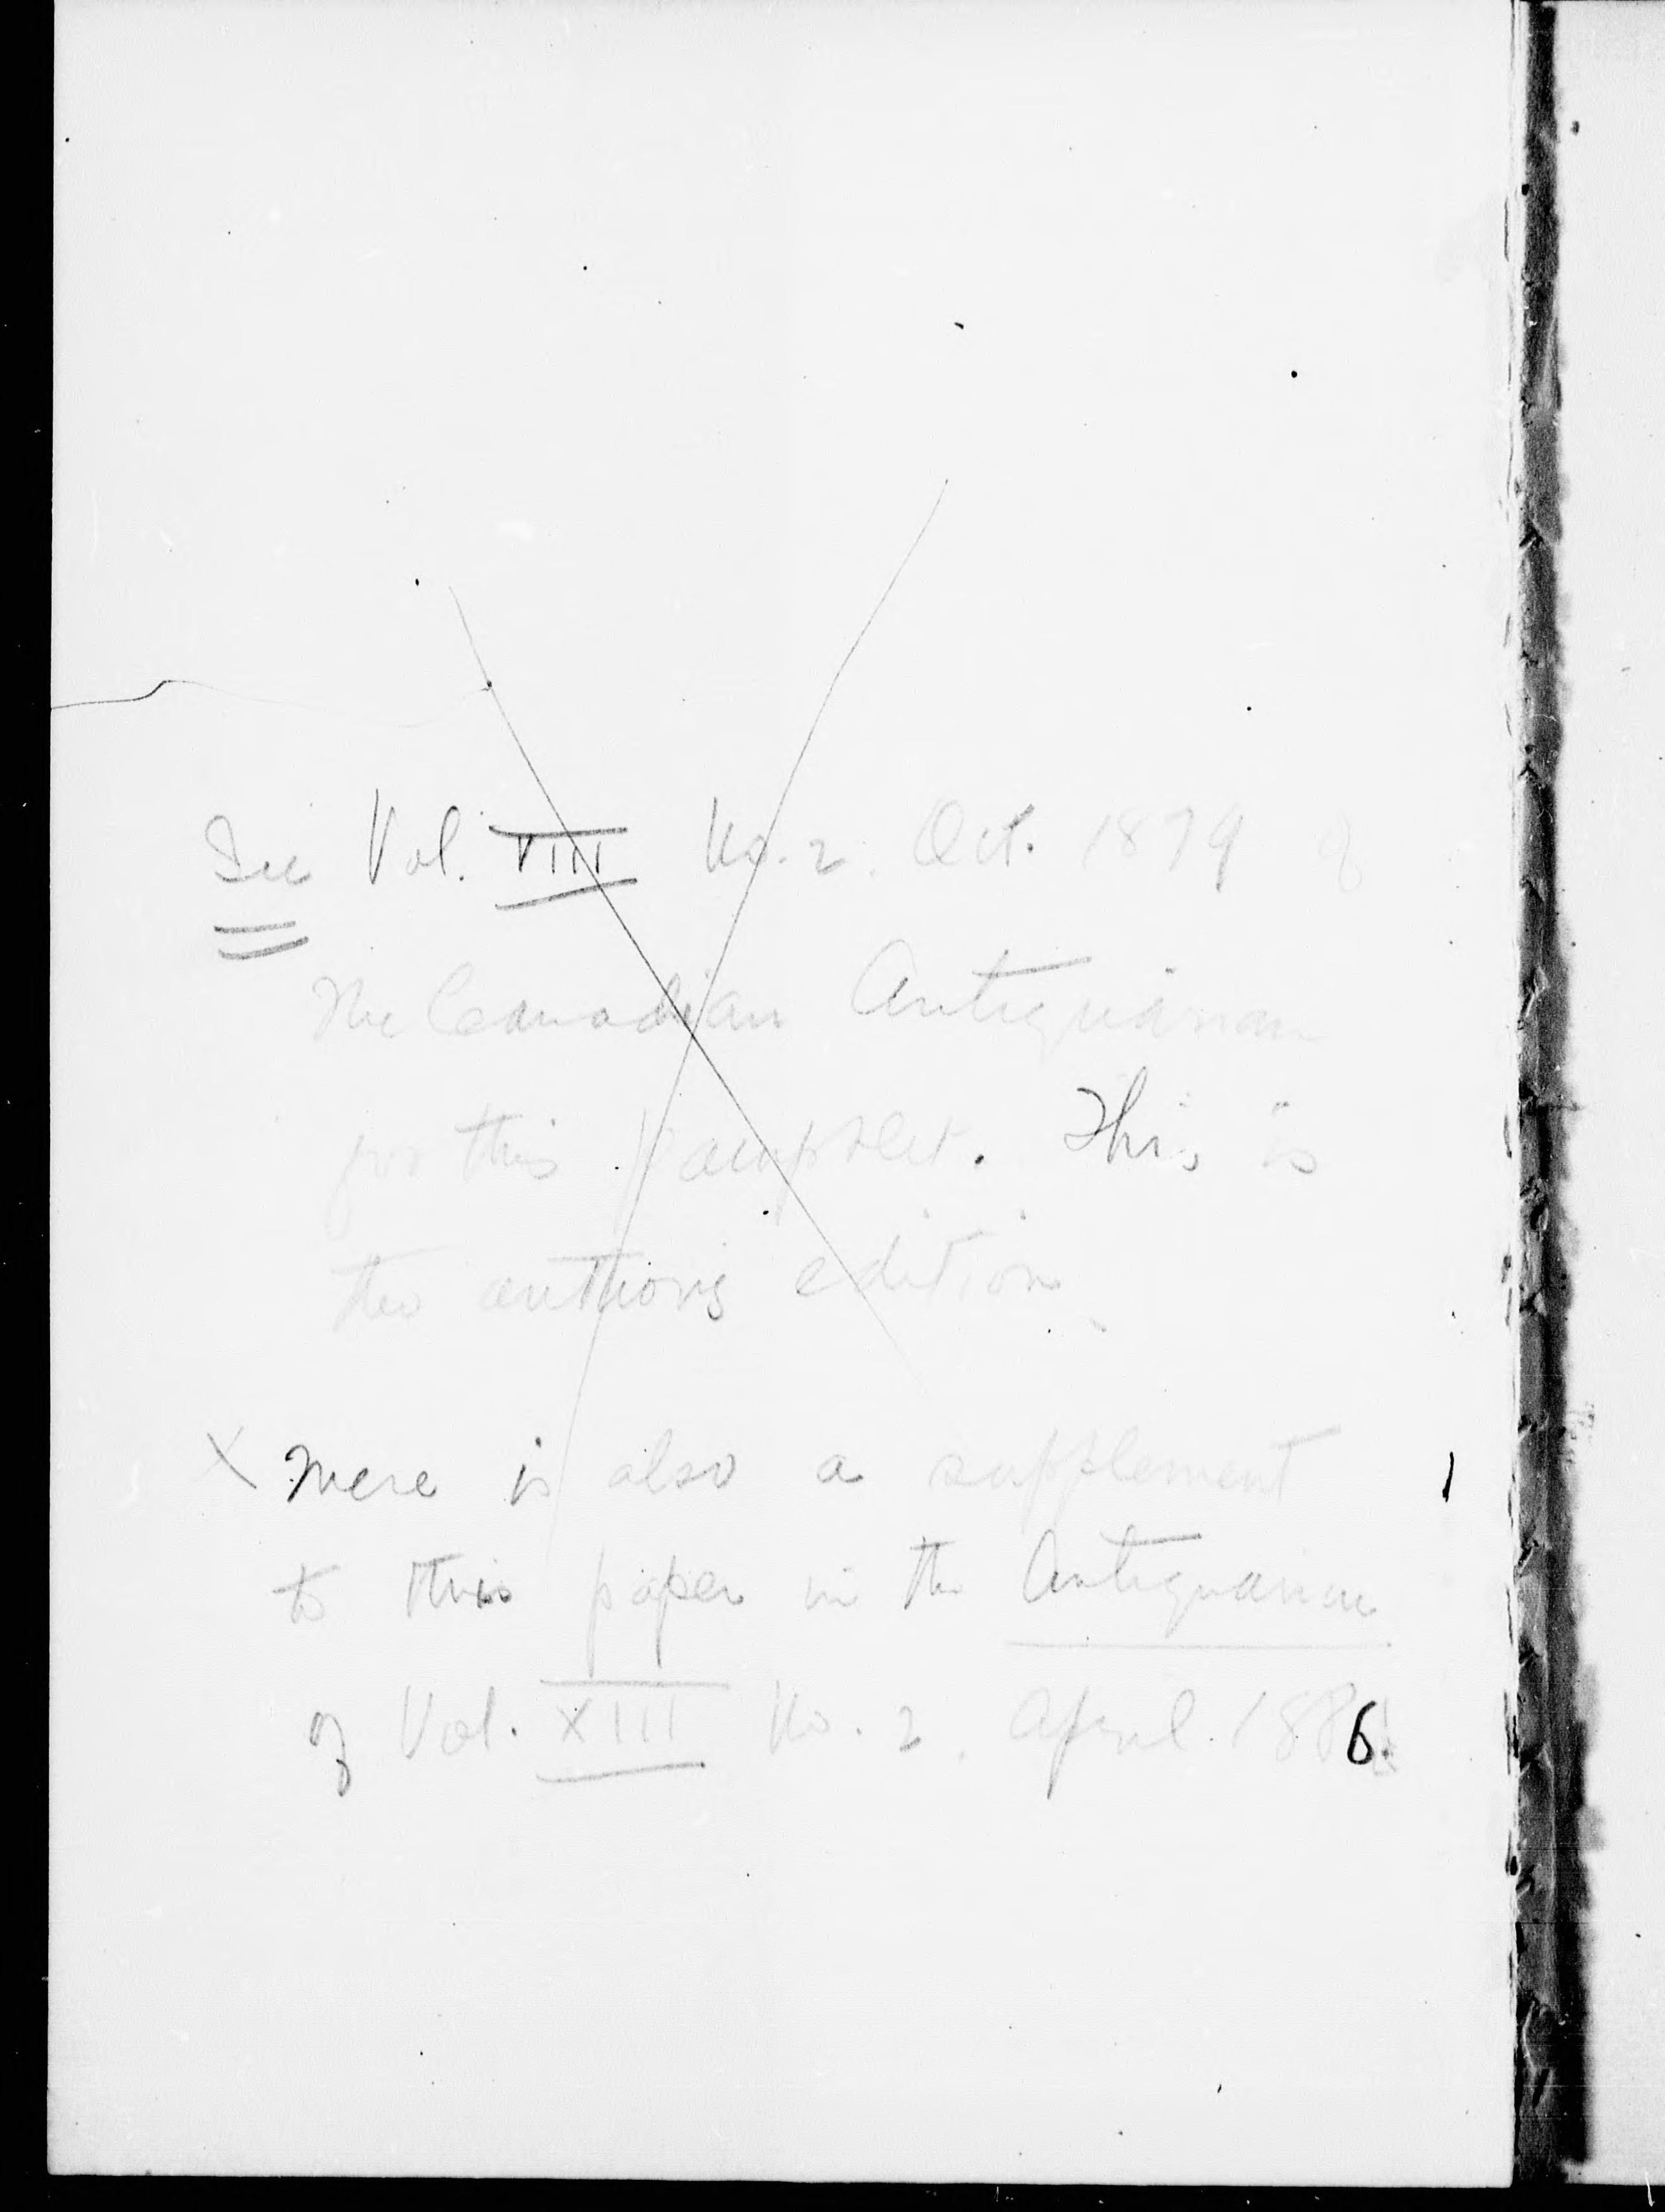 See Vol. VIII No. 2. Oct. 1879 of
The Canadian Antiquarian
for this pamphlet. This is
the authors edition
X There is also a supplement
to this paper in the Antiquarian
of Vol. XIII No. 2. April 1886.